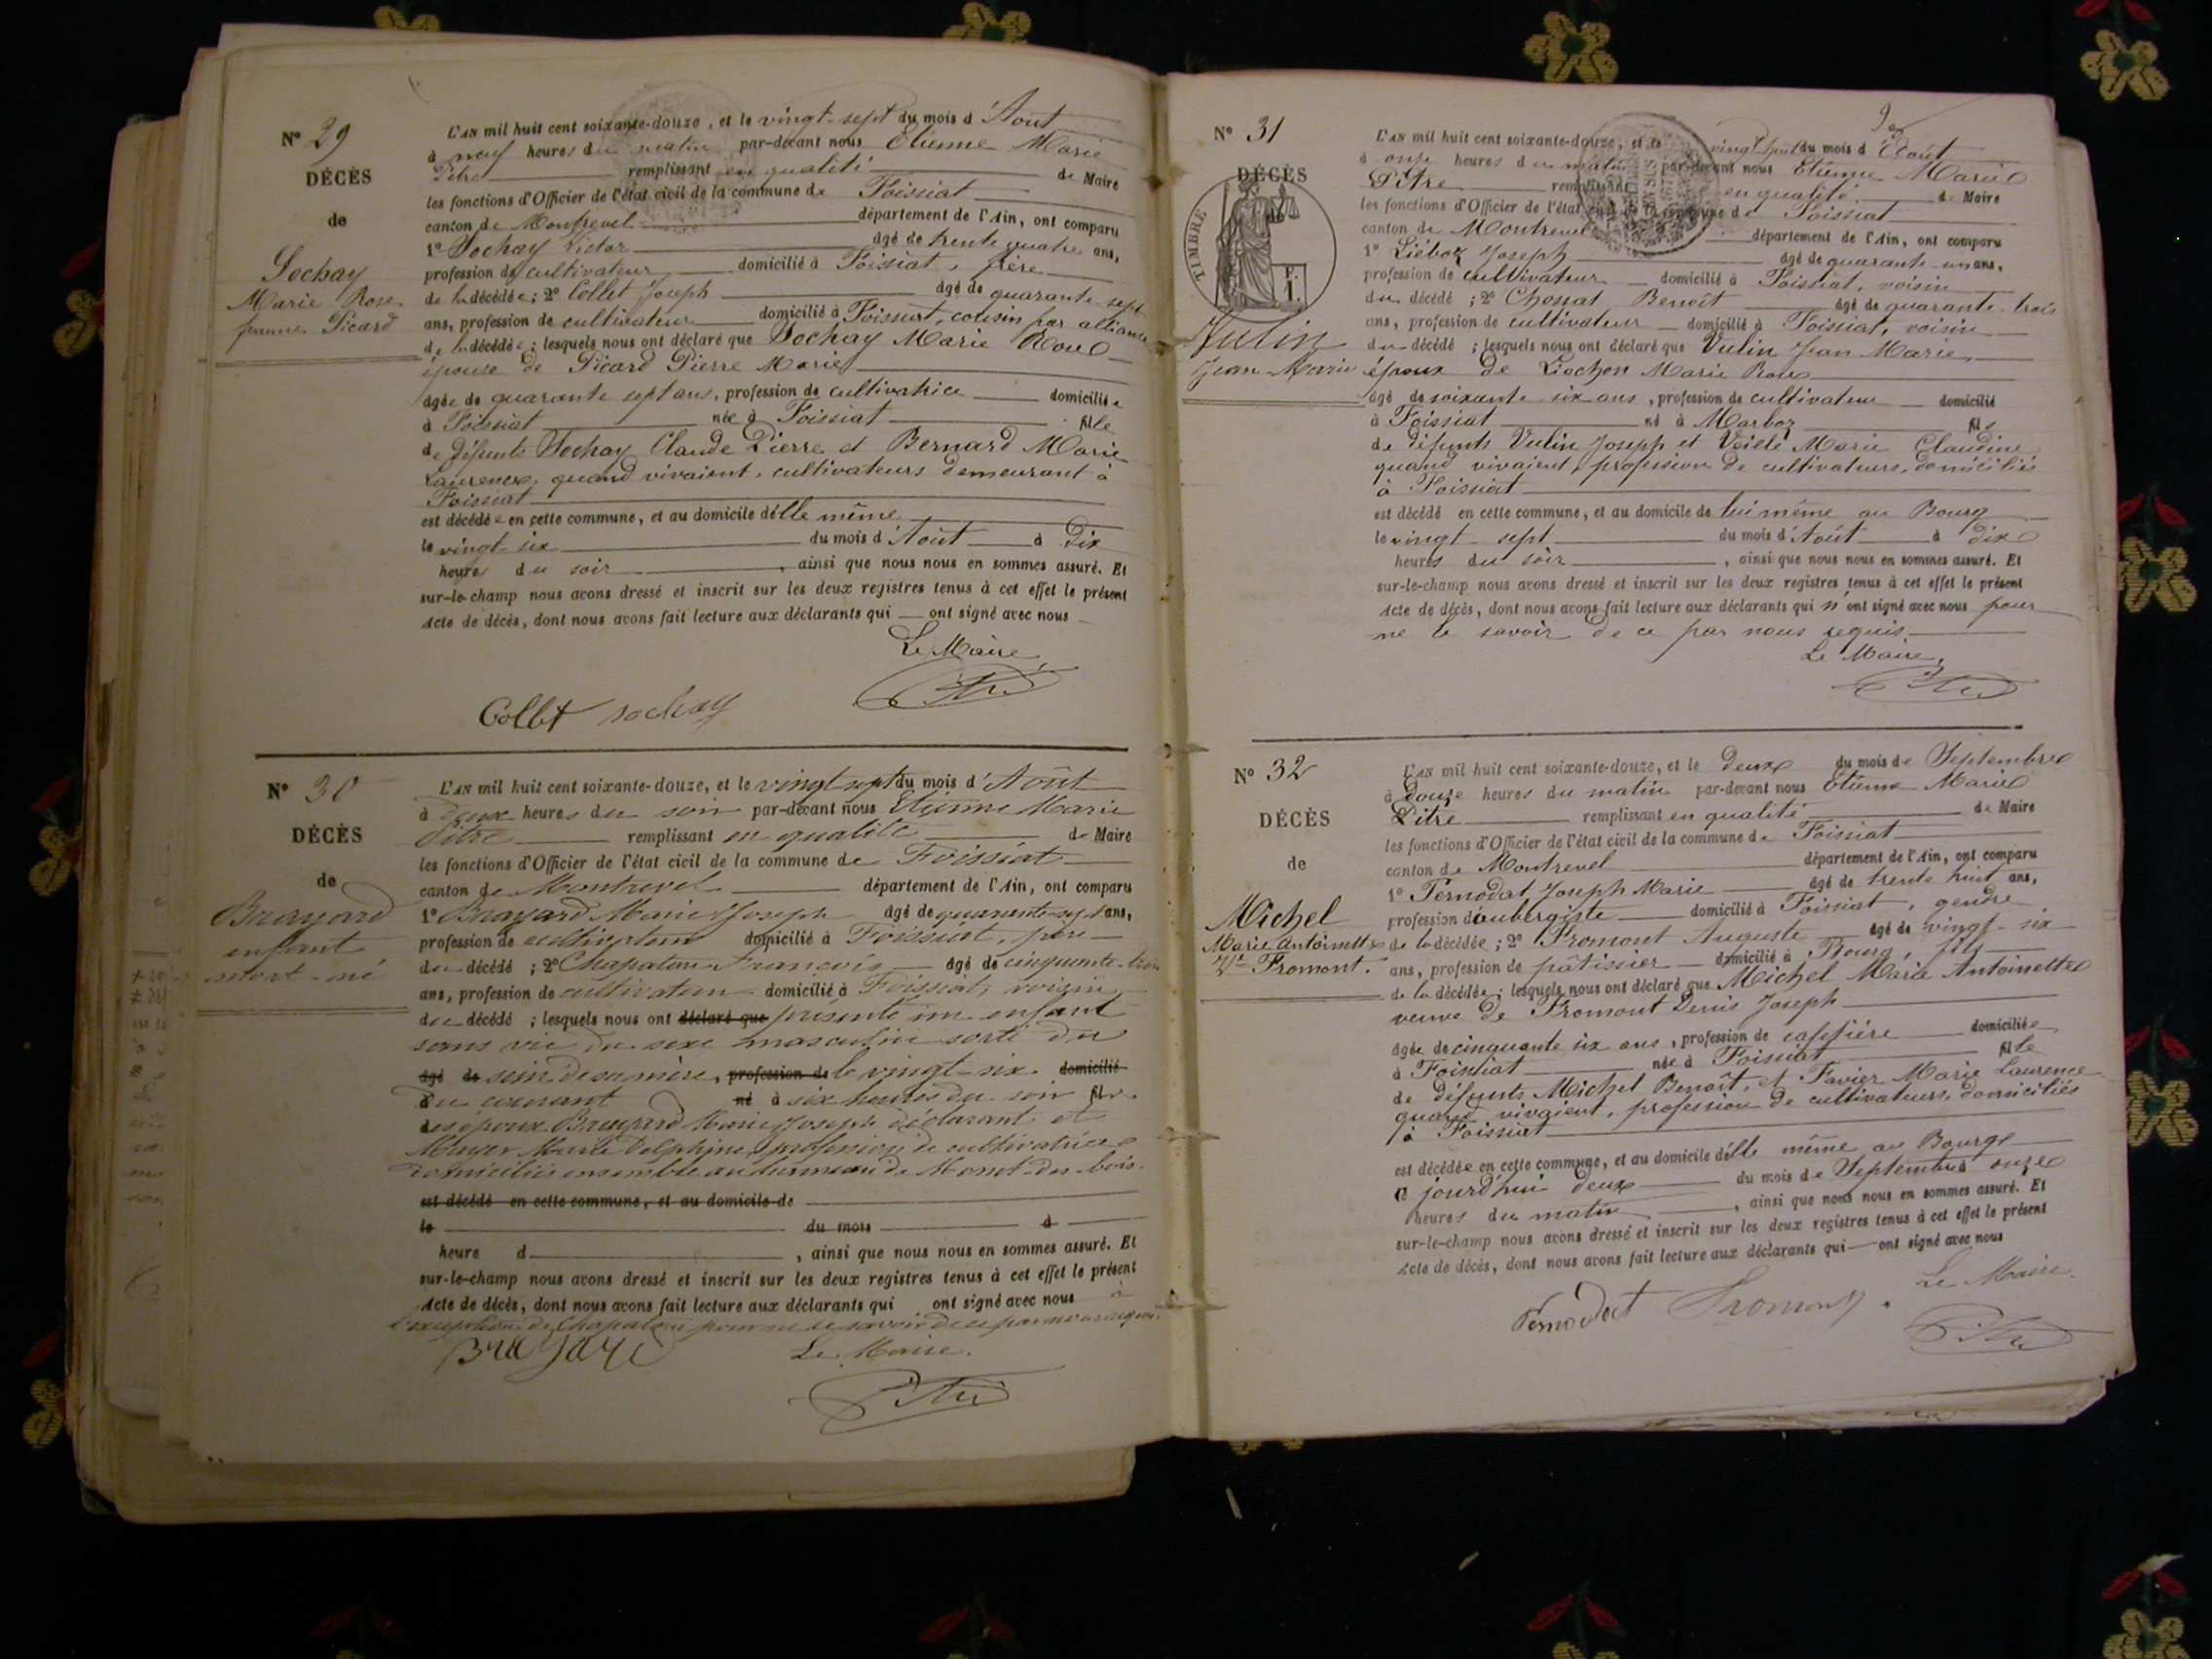 N° 29
DÉCÈS
de
Sochay
Marie Rose
femme Picard
L'AN mil huit cent soixante-douze, et le vingt-sept du mois d'Août
à neuf heures du matin par-devant nous Etienne Marie
Pitre remplissant en qualité de Maire
les fonctions d'Officier de l'état civil de la commune de Foissiat
canton de Montrevel département de l'Ain, ont comparu
1° Sochay Victor âgé de trente quatre ans,
profession de cultivateur domicilié à Foissiat, frère
de la décédée; 2° Collet Joseph âgé de quarante sept
ans, profession de cultivateur domicilié à Foissiat, cousin par alliance
de la décédée; lesquels nous ont déclaré que Sochay Marie Rose
épouse de Picard Pierre Marie
âgée de quarante sept ans, profession de cultivatrice domiciliée
à Foissiat née à Foissiat fille
de défunts Sochay Claude Pierre et Bernard Marie
Laurence, quand vivaient, cultivateurs demeurant à
Foissiat
est décédée en cette commune, et au domicile d'elle même
le vingt six du mois d'Août à dix
heures du soir, ainsi que nous nous en sommes assuré. Et
sur-le-champ nous avons dressé et inscrit sur les deux registres tenus à cet effet le présent
Acte de décès, dont nous avons fait lecture aux déclarants qui ont signé avec nous
Le Maire
Collet Sochay Pitre
N° 30
DÉCÈS
de
Brayard
enfant
mort-né
L'AN mil huit cent soixante-douze, et le vingt sept du mois d'Août
à deux heures du soir par-devant nous Etienne Marie
Pitre remplissant en qualité de Maire
les fonctions d'Officier de l'état civil de la commune de Foissiat
canton de Montrevel département de l'Ain, ont comparu
1° Brayard Marie Joseph âgé de quarante-sept ans,
profession de cultivateur domicilié à Foissiat, père
du décédé; 2° Chapelan François âgé de cinquante-trois
ans, profession de cultivateur domicilié à Foissiat, voisin
du décédé; lesquels nous ont déclaré que présenté un enfant
sans vie du sexe masculin sorti du
âgé de sein de sa mère, profession de le vingt-six domicilié
du courant né à six heures du soir fils
des époux Brayard Marie Joseph déclarant et
Marie Delphine, profession de cultivatrice
domiciliés ensemble au hameau de Mont-du-bois.
est décédé en cette commune, et au domicile de
le du mois à
heure d, ainsi que nous nous en sommes assuré. Et
sur-le-champ nous avons dressé et inscrit sur les deux registres tenus à cet effet le présent
Acte de décès, dont nous avons fait lecture aux déclarants qui ont signé avec nous à
l'exception de Chapelan pour ne le savoir de ce par nous requis.
Brayard Le Maire.
Pitre
N° 31
DÉCÈS
de
TIMBRE
Vulin
Jean Marie
L'AN mil huit cent soixante-douze, et le vingt sept du mois d'Août
à onze heures du matin par-devant nous Etienne Marie
Pitre remplissant en qualité de Maire
les fonctions d'Officier de l'état civil de la commune de Foissiat
canton de Montrevel département de l'Ain, ont comparu
1° Liéboz Joseph âgé de quarante un ans,
profession de cultivateur domicilié à Foissiat, voisin
du décédé; 2° Chossat Benoît âgé de quarante-trois
ans, profession de cultivateur domicilié à Foissiat, voisin
du décédé; lesquels nous ont déclaré que Vulin Jean Marie,
époux de Liochon Marie Rose
âgé de soixante six ans, profession de cultivateur domicilié
à Foissiat né à Marboz fils
de défunts Vulin Joseph et Veille Marie Claudine
quand vivaient, profession de cultivateurs, domiciliés
à Foissiat
est décédé en cette commune, et au domicile de lui même au Bourg
le vingt-sept du mois d'Août à dix
heures du soir, ainsi que nous nous en sommes assuré. Et
sur-le-champ nous avons dressé et inscrit sur les deux registres tenus à cet effet le présent
Acte de décès, dont nous avons fait lecture aux déclarants qui n'ont signé avec nous pour
ne le savoir de ce par nous requis
Le Maire,
Pitre
N° 32
DÉCÈS
de
Michel
Marie Antoinette
Vve Fromont.
L'AN mil huit cent soixante-douze, et le deux du mois de Septembre
à douze heures du matin par-devant nous Etienne Marie
Pitre remplissant en qualité de Maire
les fonctions d'Officier de l'état civil de la commune de Foissiat
canton de Montrevel département de l'Ain, ont comparu
1° Pernodat Joseph Marie âgé de trente huit ans,
profession d'aubergiste domicilié à Foissiat, gendre
de la décédée; 2° Fromont Auguste âgé de vingt-six
ans, profession de pâtissier domicilié à Bourg, fils
de la décédée; lesquels nous ont déclaré que Michel Marie Antoinette
veuve de Fromont Denis Joseph
âgée de cinquante six ans, profession de cafetière domiciliée
à Foissiat née à Foissiat fille
de défunts Michel Benoît, et Favier Marie Laurence
quand vivaient, profession de cultivateurs, domiciliés
à Foissiat
est décédée en cette commune, et au domicile d'elle même au Bourg
ce jourd'hui deux du mois de Septembre onze
heures du matin, ainsi que nous nous en sommes assuré. Et
sur-le-champ nous avons dressé et inscrit sur les deux registres tenus à cet effet le présent
Acte de décès, dont nous avons fait lecture aux déclarants qui ont signé avec nous
Le Maire.
Pernodat Fromont
Pitre